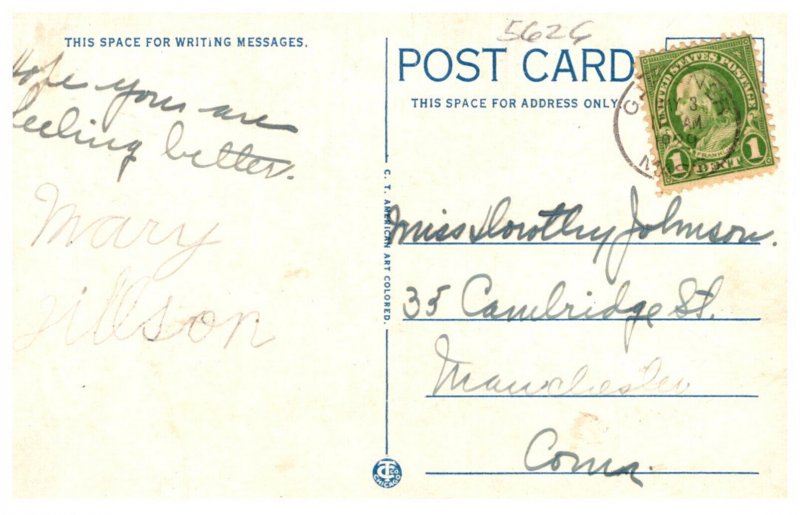 5626
THIS SPACE FOR WRITING MESSAGES.
Hope you are
feeling better.
Mary
Tillson
POST CARD
THIS SPACE FOR ADDRESS ONLY.
UNITED STATES POSTAGE
FRANKLIN
1 CENT 1
3
AM
C. T. AMERICAN ART COLORED.
Miss Dorothy Johnson.
35 Cambridge St.
Manchester
Conn.
CT CO
CHICAGO